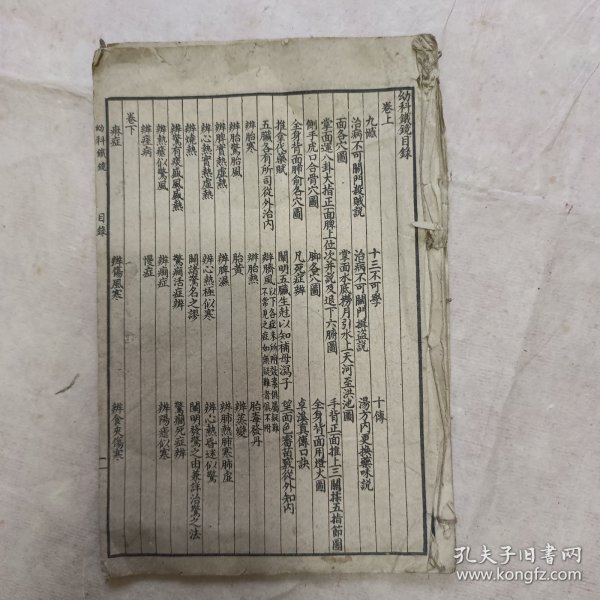 幼科鐵鏡目錄
卷上
九恨 十三不可學 十傳
治病不可關門殺賊說 治病不可開門揖盜說 湯方內更換藥味說
面各穴圖 掌面水底撈月引水上天河至洪池圖
掌面運八卦大指正面脾上位次并說及退下六腑圖 手背正面推上三關揉五指節圖
側手虎口合骨穴圖 腳各穴圖 全身背面用燈火圖
全身背面肺俞各穴圖 凡死症辨 卓溪真傳口訣
推拿代藥賦 闡明五臟生尅以知補母瀉子 望面色審苗竅從外知內
五臟各有所司從外治內 辨臍風
辨胎寒 辨胎熱 胎毒發丹
辨胎驚胎風 胎黃 辨蒸變
辨脾實熱虛熱 辨脾濕 辨肺熱肺寒肺虛
辨心熱實熱虛熱 辨心熱極似寒 辨心熱昏迷似驚
辨燒熱 闢諸驚名之謬 闡明發驚之由兼詳治驚之法
辨驚有痰盛風盛熱 驚癇活症辨 驚癇死症辨
辨熱瘧似驚風 辨癇症 辨陽症似寒
辨痙病 慢症
卷下
麻症 辨傷風寒 辨食夾傷寒
幼科鐵鏡 目錄 一
孔夫子旧书网
www.kongfz.com